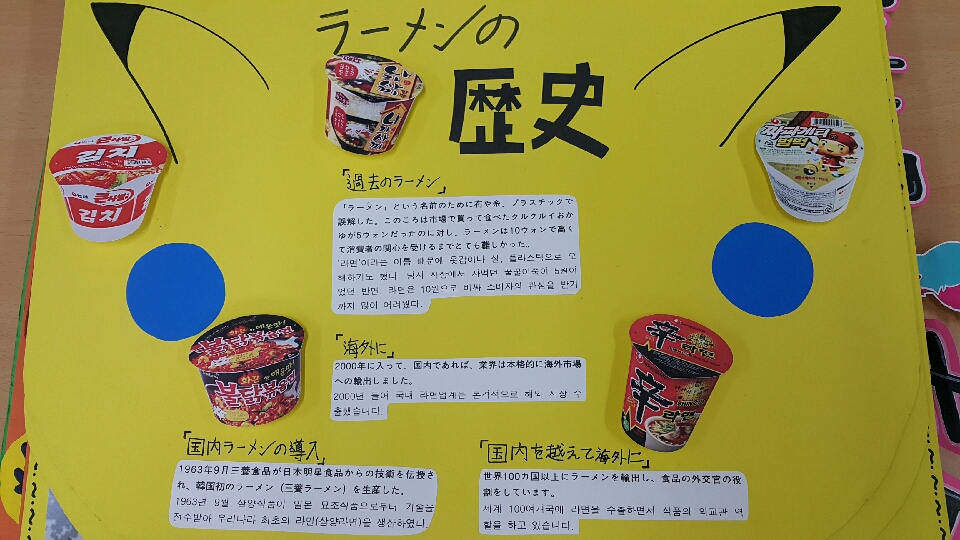 ラーメンの
歴史
김치
김치
짜파게티
범벅
「過去のラーメン」
「ラーメン」という名前のために布や糸、プラスチックで
誤解した。このころは市場で買って食べたクルクルイおか
ゆが5ウォンだったのに対し、ラーメンは10ウォンで高く
て消費者の関心を受けるまでとても難しかった。
'라면'이라는 이름 때문에 옷감이나 실, 플라스틱으로 오
해하기도 했다. 당시 시장에서 사먹던 꿀꿀이죽이 5원이
었던 반면, 라면은 10원으로 비싸 소비자의 관심을 받기
까지 많이 어려웠다.
「海外に」
2000年に入って、国内であれば、業界は本格的に海外市場
への輸出しました。
2000년 들어 국내 라면업계는 본격적으로 해외 시장 수
출했습니다.
화끈한 매운맛!
불닭볶음면
불닭볶음면
辛
辛
라면
「国内ラーメンの導入」
1963年9月三養食品が日本明星食品からの技術を伝授さ
れ、韓国初のラーメン（三養ラーメン）を生産した。
1963년 9월 삼양식품이 일본 묘조식품으로부터 기술을
전수받아 우리나라 최초의 라면(삼양라면)을 생산하였다.
「国内を越えて海外に」
世界100カ国以上にラーメンを輸出し、食品の外交官の役
割をしています。
세계 100여개국에 라면을 수출하면서 식품의 외교관 역
할을 하고 있습니다.